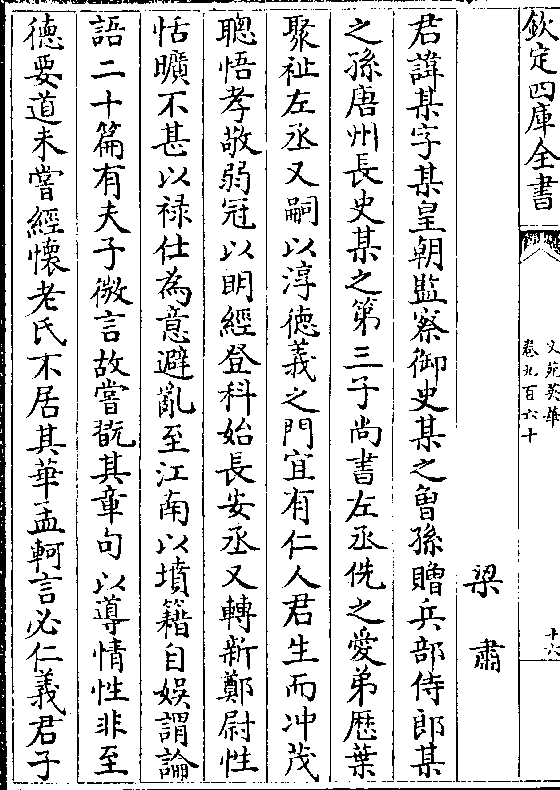 欽定四庫全書
文苑英華
卷九百六十
十六
梁肅
君諱某字某皇朝監察御史某之曾孫贈兵部侍郎某
之孫唐州長史某之第三子尚書左丞侁之愛弟歴葉
聚祉左丞又嗣以淳德義之門宜有仁人君生而冲茂
聰悟孝敬弱冠以明經登科始長安丞又轉新鄭尉性
恬曠不甚以祿仕為意避亂至江南以墳籍自娱謂論
語二十篇有夫子微言故嘗翫其章句以導情性非至
德要道未嘗經懷老氏不居其華孟軻言必仁義君子